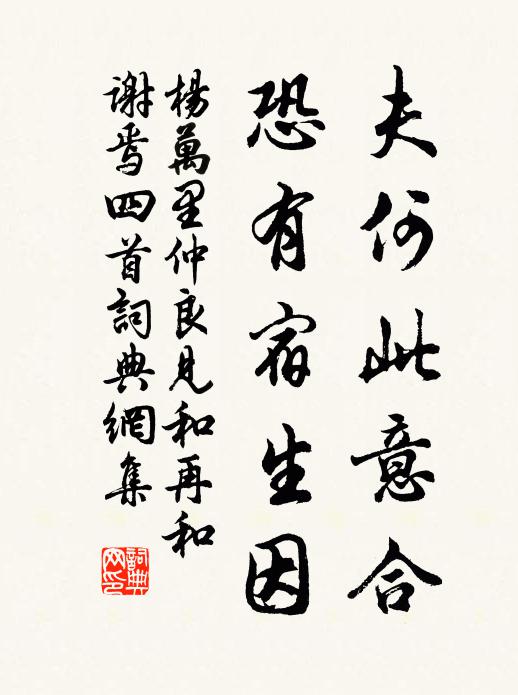 夫何此意合
恐有宿生因
楊萬里仲良見和再和
謝焉四首詞典網集
詞典
网印